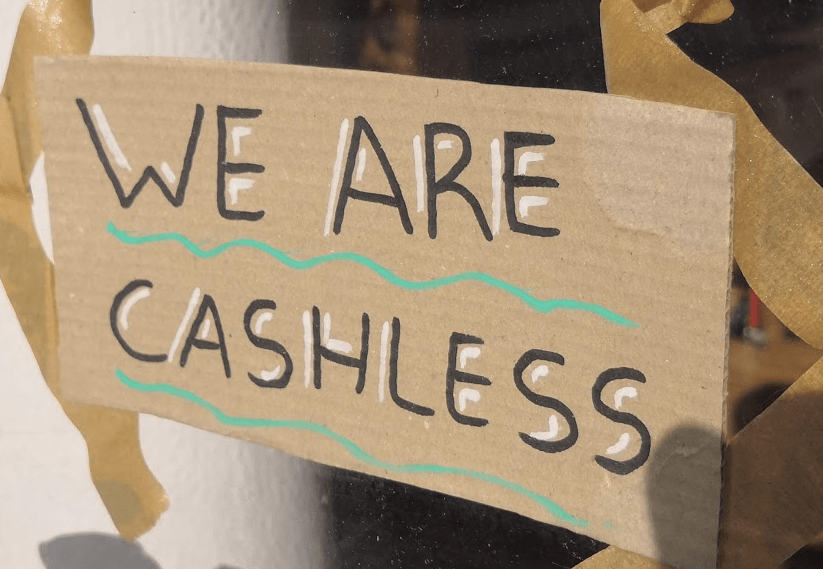 WE ARE
CASHLESS